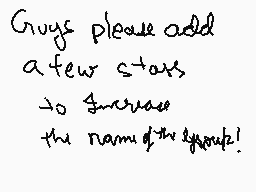 Guys please add
a few stars
to Increase
the name of the